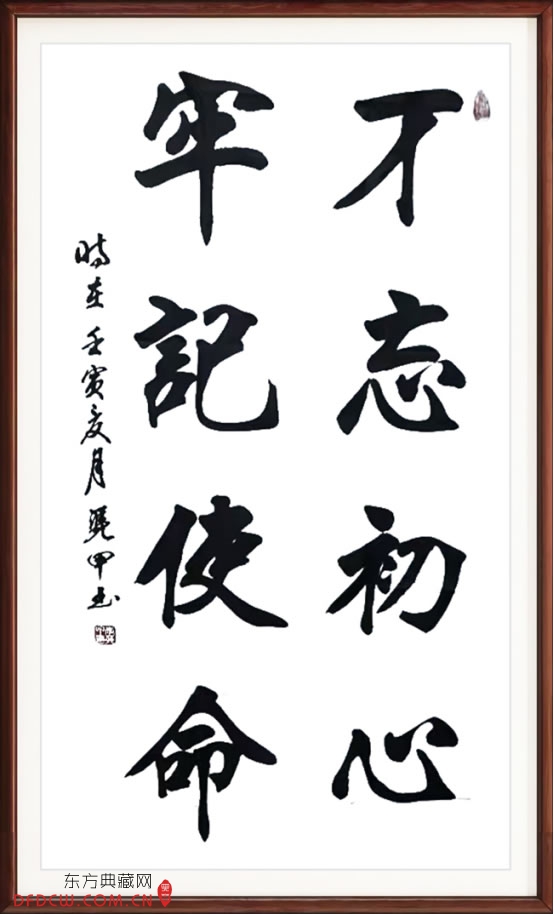 不忘初心
牢记使命
時在壬寅夏月 甲书
东方典藏网
DFDCW.COM.CN